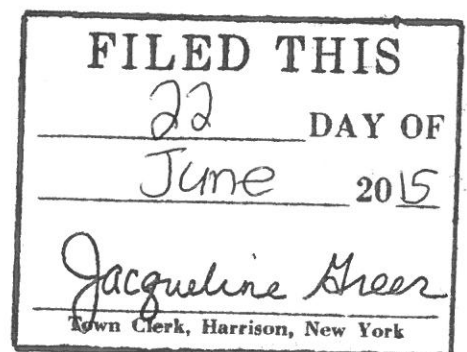 FILED THIS
22 DAY OF
June 2015
Jacqueline Greer
Town Clerk, Harrison, New York